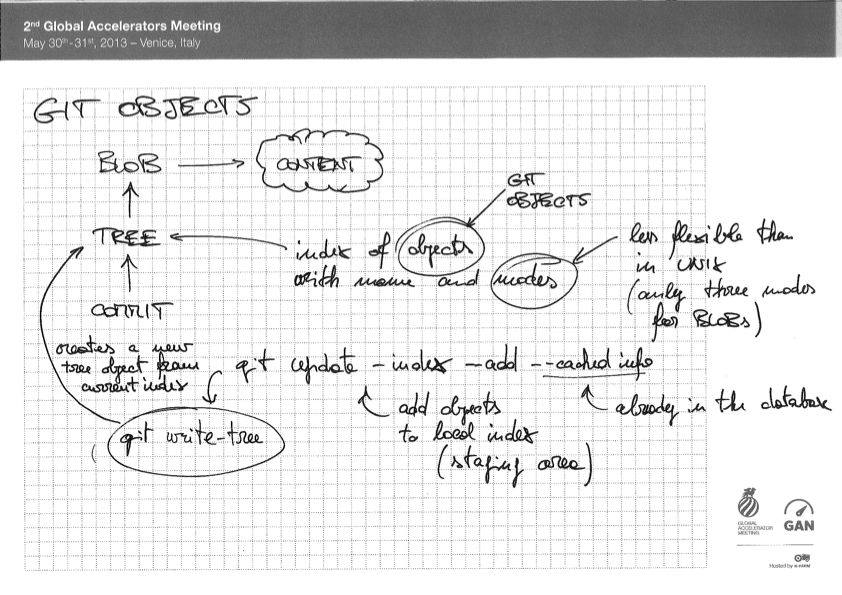 2nd Global Accelerators Meeting
May 30th-31st, 2013 – Venice, Italy
GIT OBJECTS
BLOB
CONTENT
GIT
OBJECTS
TREE
index of objects
with name and modes
less flexible than
in UNIX
(only three modes
for BLOBs)
COMMIT
creates a new
tree object from
current index
git update-index --add --cached info
add objects
to local index
(staging area)
already in the database
git write-tree
GLOBAL
ACCELERATOR
MEETING
GAN
Hosted by H-FARM